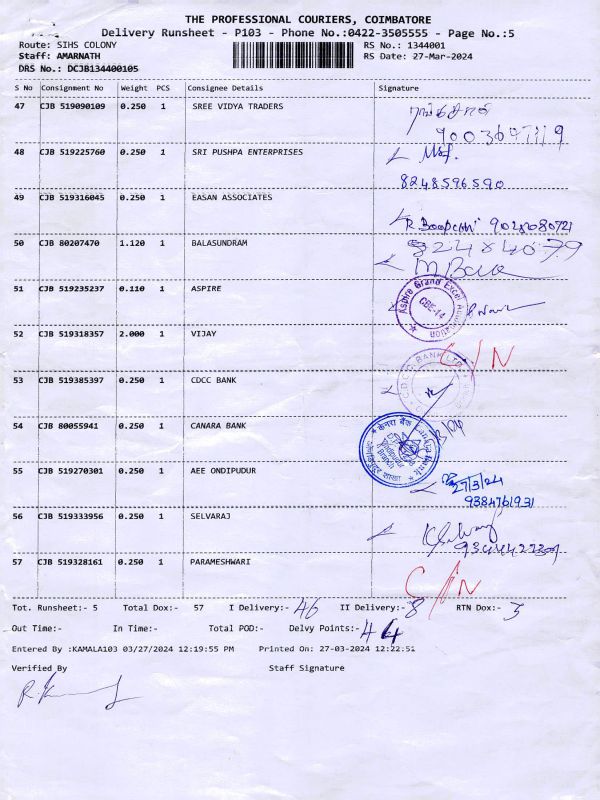 THE PROFESSIONAL COURIERS, COIMBATORE
Delivery Runsheet - P103 - Phone No.:0422-3505555 - Page No.:5
Route: SIHS COLONY
RS No.: 1344001
Staff: AMARNATH
RS Date: 27-Mar-2024
DRS No.: DCJB134400105
S No Consignment No Weight PCS Consignee Details Signature
47 CJB 519090109 0.250 1 SREE VIDYA TRADERS
48 CJB 519225760 0.250 1 SRI PUSHPA ENTERPRISES
8248596590
49 CJB 519316045 0.250 1 EASAN ASSOCIATES
50 CJB 80207470 1.120 1 BALASUNDRAM
51 CJB 519235237 0.110 1 ASPIRE
Aspire Grand Excel
CBE-14
52 CJB 519318357 2.000 1 VIJAY
C/N
53 CJB 519385397 0.250 1 CDCC BANK
C.D.C.C. BANK LTD.
54 CJB 80055941 0.250 1 CANARA BANK
केनरा बैंक Canara Bank
55 CJB 519270301 0.250 1 AEE ONDIPUDUR
27/3/24
9384761931
56 CJB 519333956 0.250 1 SELVARAJ
57 CJB 519328161 0.250 1 PARAMESHWARI
C/N
Tot. Runsheet:- 5 Total Dox:- 57 I Delivery:- 46 II Delivery:- 8 RTN Dox:- 3
Out Time:- In Time:- Total POD:- Delvy Points:- 44
Entered By :KAMALA103 03/27/2024 12:19:55 PM Printed On: 27-03-2024 12:22:51
Verified By Staff Signature